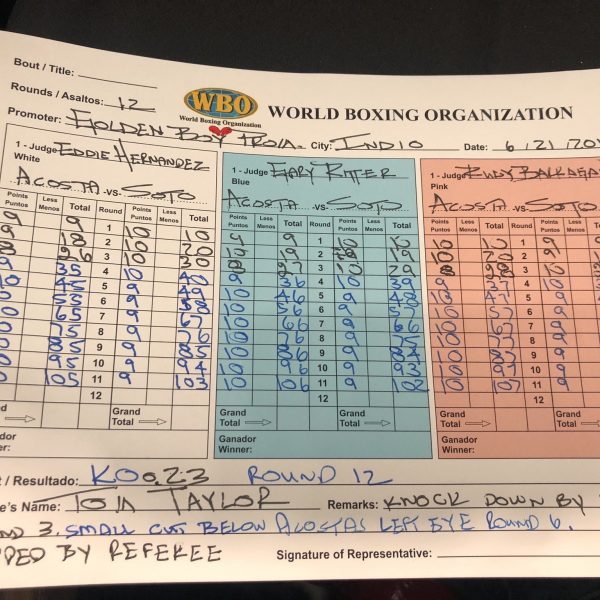 Bout / Title:
Rounds / Asaltos: 12
WBO
World Boxing Organization
WORLD BOXING ORGANIZATION
Promoter: GOLDEN BOY PROM. City: INDIO Date: 6/21/20
1 - Judge EDDIE HERNANDEZ
White
ACOSTA -vs- SOTO
1 - Judge GARY RITTER
Blue
ACOSTA -vs- SOTO
1 - Judge RUDY
Pink
ACOSTA -vs- SOTO
Points Puntos Less Menos Total Round Points Puntos Less Menos Total
Points Puntos Less Menos Total Round Points Puntos Less Menos Total
Points Puntos Less Menos Total Round Points Puntos Less Menos
9 9 1 10 10 9 9 1 10 10 10 10 1 9
2 10 20 2 19 2
8 26 3 10 30 3 10 29 3
9 35 4 10 40 9 36 4 10 39 9 4
10 45 5 9 10 46 5 9 48 10 47 5 9
10 55 6 9 58 10 56 6 9 57 10 57 6 9
10 65 7 9 67 10 66 7 9 66 10 7 9
10 75 8 9 76 10 76 8 9 10 8 9
10 85 9 9 85 10 86 9 9 84 10 9 9
10 95 10 9 94 10 96 10 9 93 10 10 9
10 105 11 9 103 10 106 11 9 102 10 107 11 9
12 12 12
Grand Total Grand Total Grand Total Grand Total Grand Total
Ganador Winner: Ganador Winner:
/ Resultado: KO 0.23 ROUND 12
e's Name: TOM TAYLOR Remarks: KNOCK DOWN BY
3. SMALL CUT BELOW ACOSTAS LEFT EYE ROUND 6.
PPED BY REFEREE Signature of Representative: